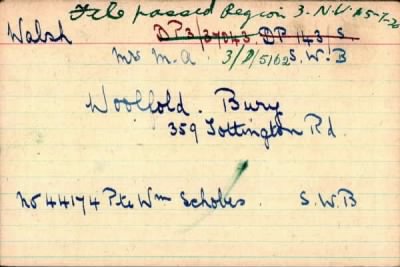 File passed Region 3. N.U.
Walsh DP3/37043. DP 143 S.
Mrs M.A. 3/D/5162 S.W.B
Woolfold. Bury
359 Tottington Rd.
No 44174 Pte Wm Schobes. S.W.B